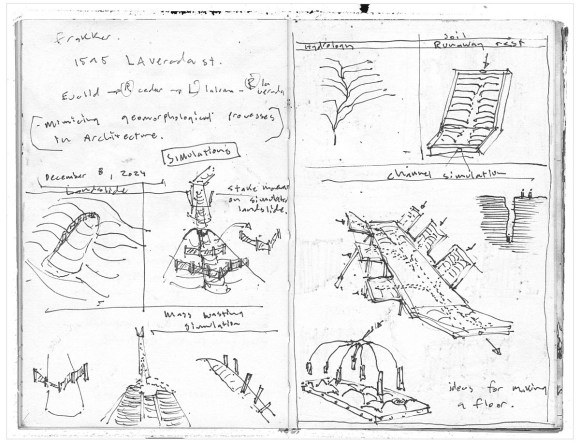 1515 LA Verada St.
Euclid → R cedar → L → R La verada
- Mimicing geomorphological Processes
in Architecture.
Simulations
December 8, 2024
Landslide
stake
on simulated
landslide.
Mass wasting
simulation
Hydrology
Soil
Runaway test
channel simulation
ideas for making
a floor.